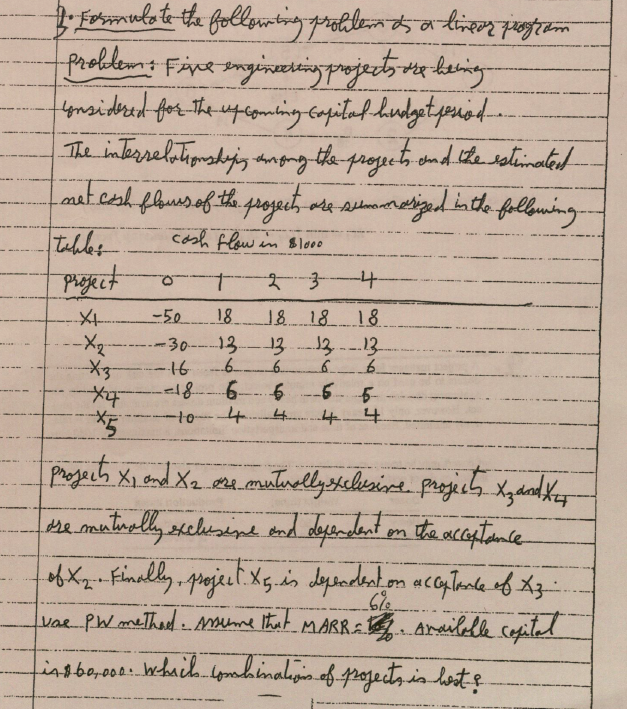 1. Formulate the following problem as a linear program
Problem: Five engineering projects are being
considered for the upcoming capital budget period.
The interrelationships among the projects and the estimated
net cash flows of the projects are summarized in the following
table: cash flow in $1000
project 0 1 2 3 4
X1 -50 18 18 18 18
X2 -30 13 13 13 13
X3 -16 6 6 6 6
X4 -18 6 6 6 6
X5 -10 4 4 4 4
projects X1 and X2 are mutually exclusive. projects X3 and X4
are mutually exclusive and dependent on the acceptance
of X2. Finally, project X5 is dependent on acceptance of X3.
6%
use PW method. Assume that MARR = . Available capital
is $60,000. Which combination of projects is best?